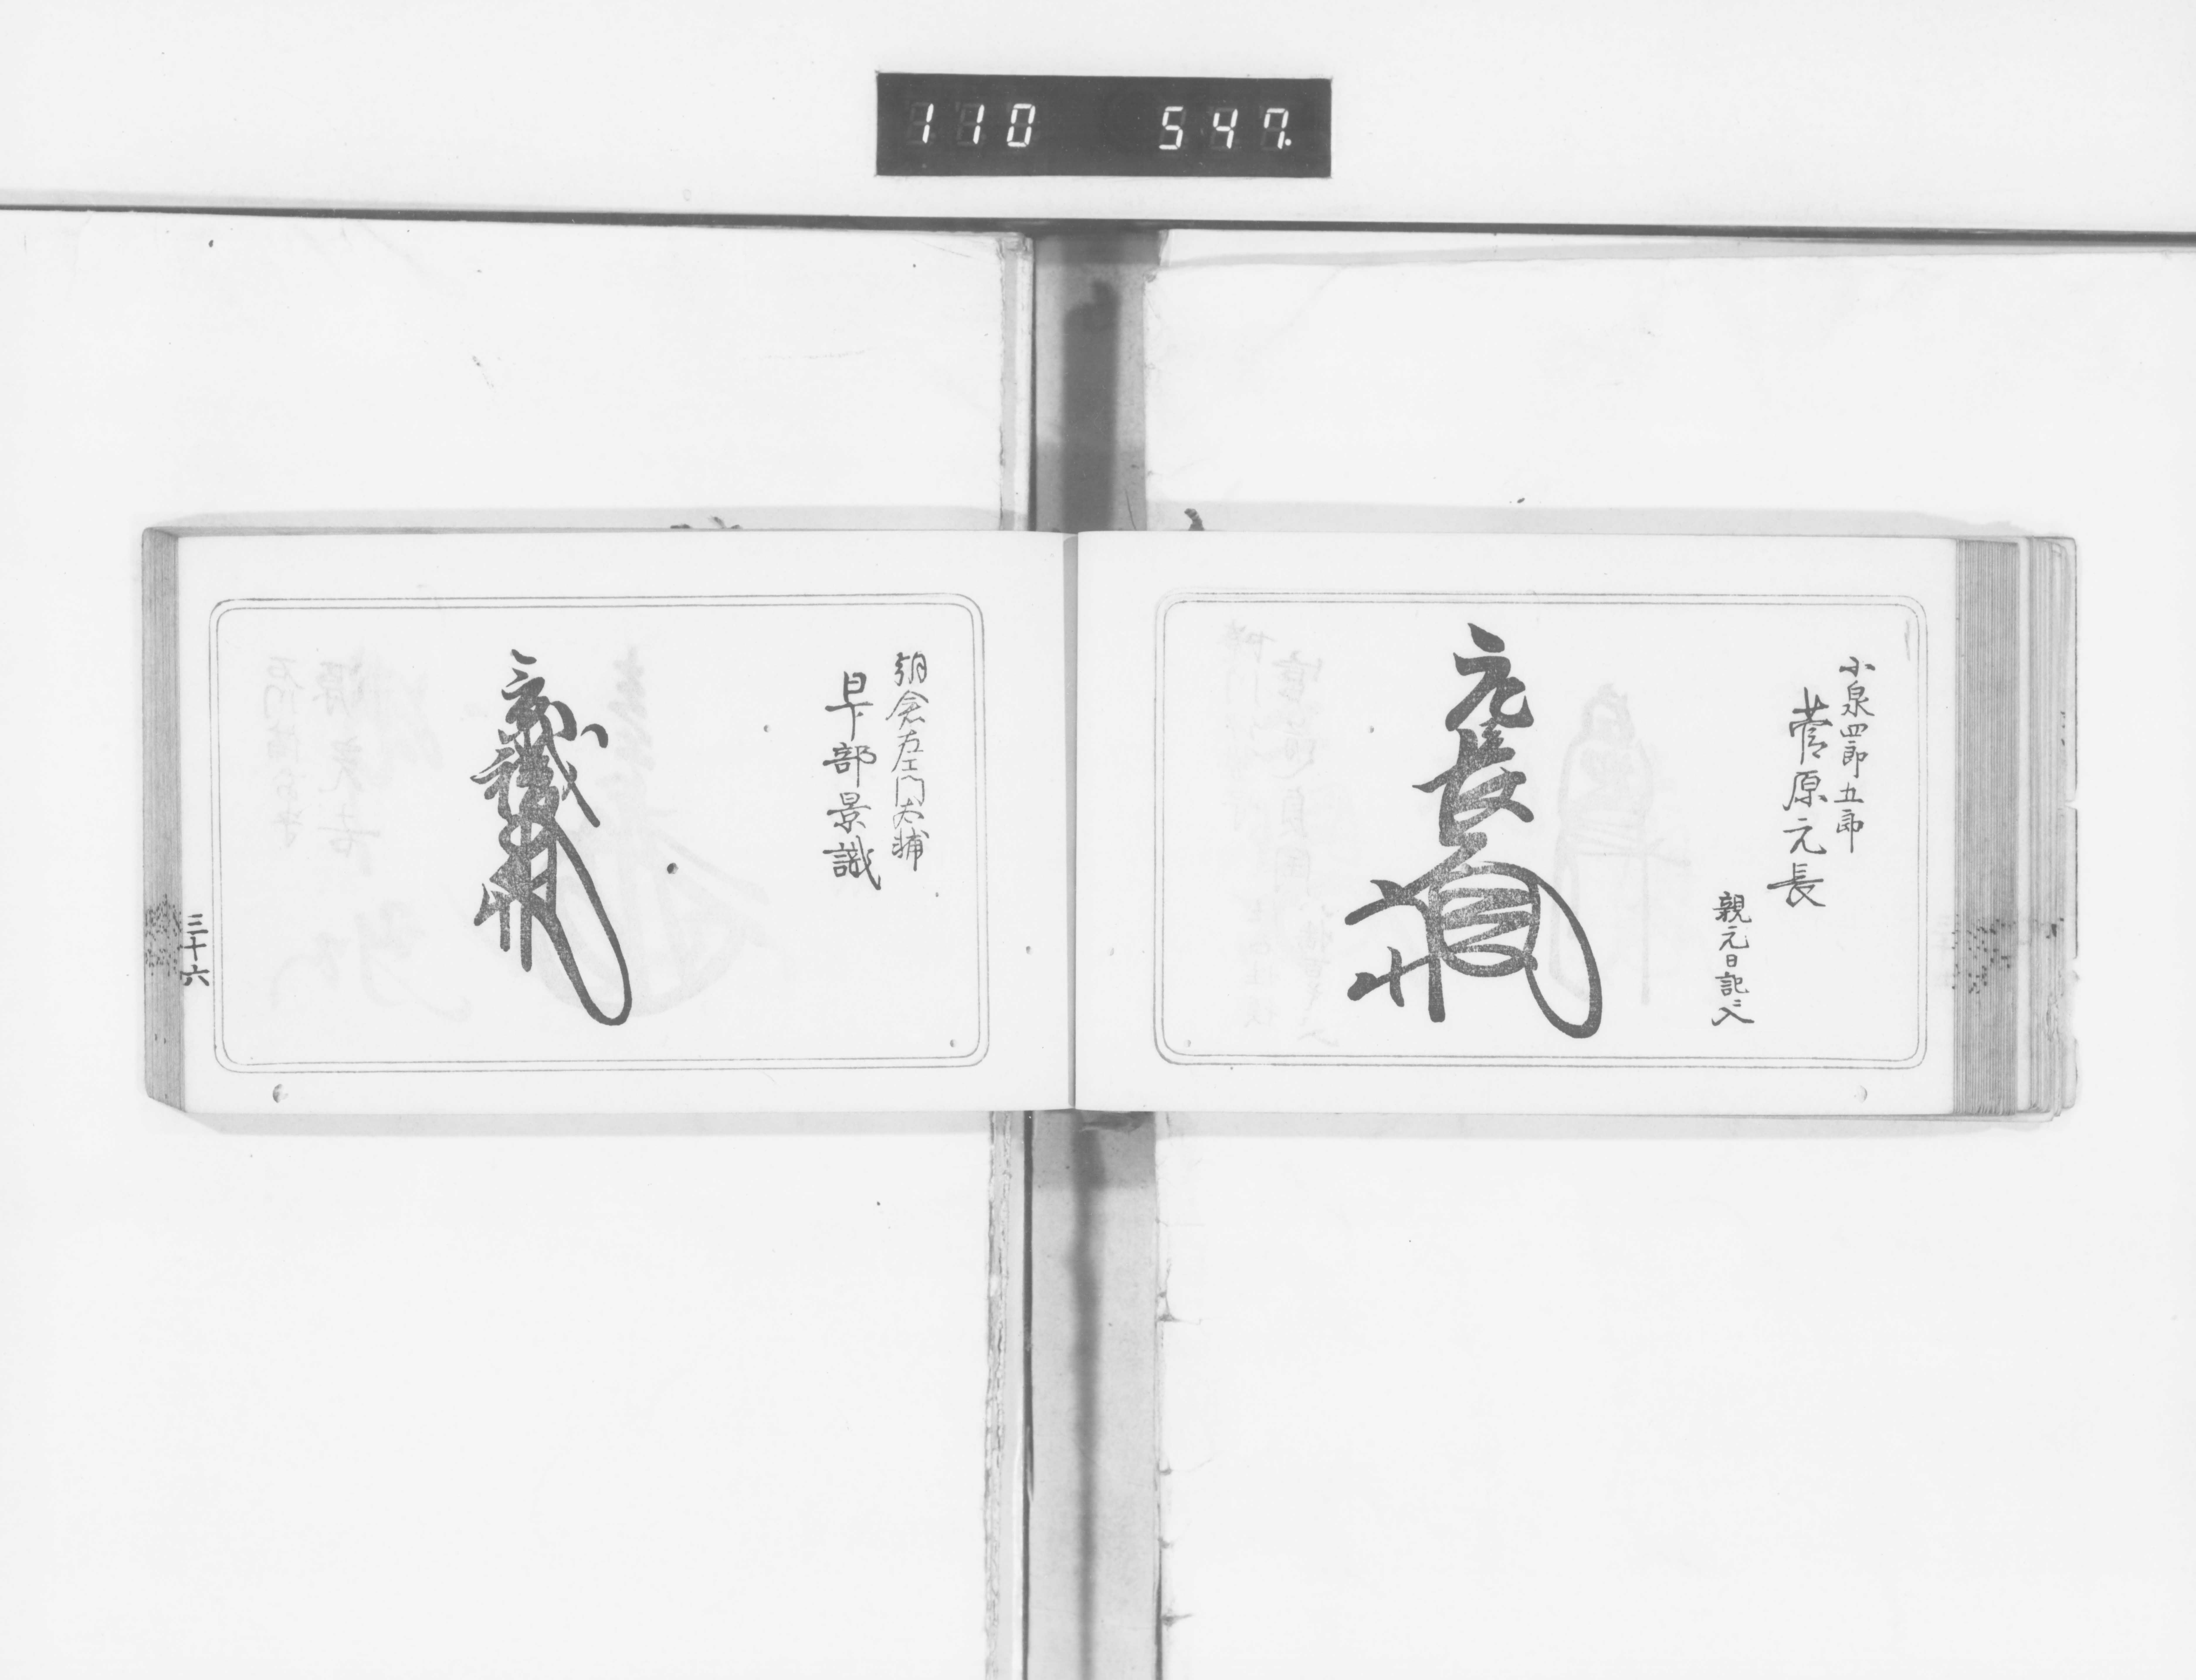 110 547.
小泉四郎五郎
菅原元長
親元日記ニ入
元長
朝倉左衛門大輔
早部景識
三十六